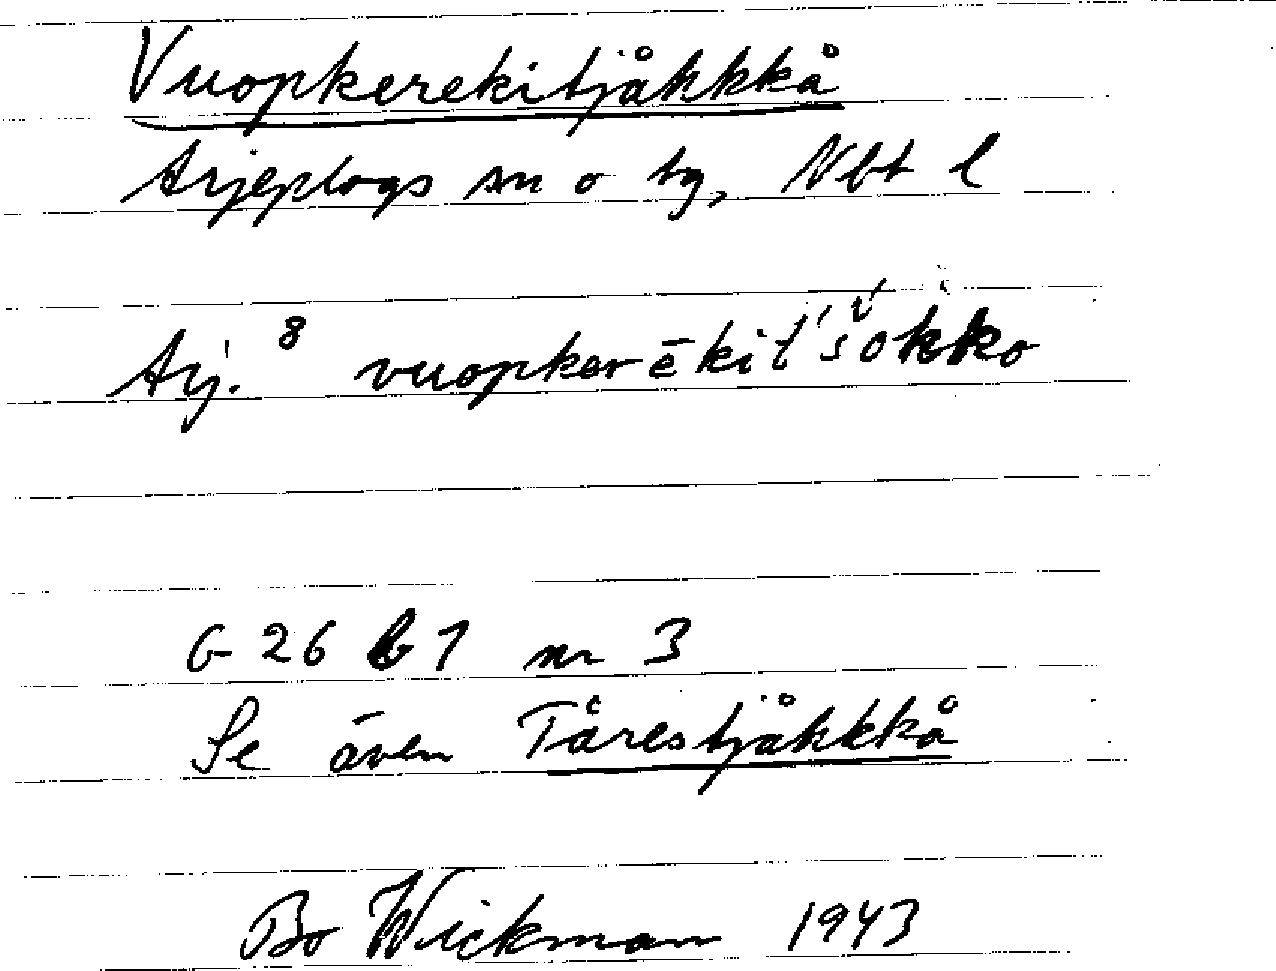 Vuopkerekitjåhkkå
Arjeplogs sn o tg, Nbt l
Arj. 8 vuopkerēkit́'šok̀ko
G 26 b 1 nr 3
Se även Tårestjåhkkå
Bo Wickman 1943